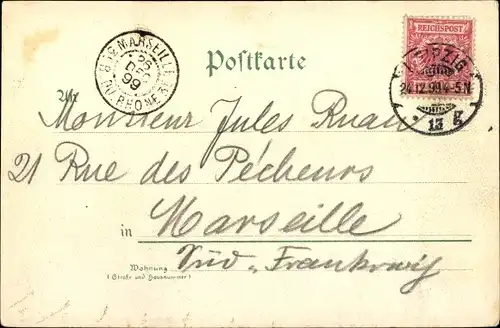 MARSEILLE
26
DEC
99
DU RHONE
Postkarte
REICHSPOST
LEIPZIG
24.12.99.4-5N.
13 g
An
Monsieur Jules Ruau
21 Rue des Pécheurs
in Marseille
Süd-Frankreich
Wohnung
(Straße und Hausnummer)